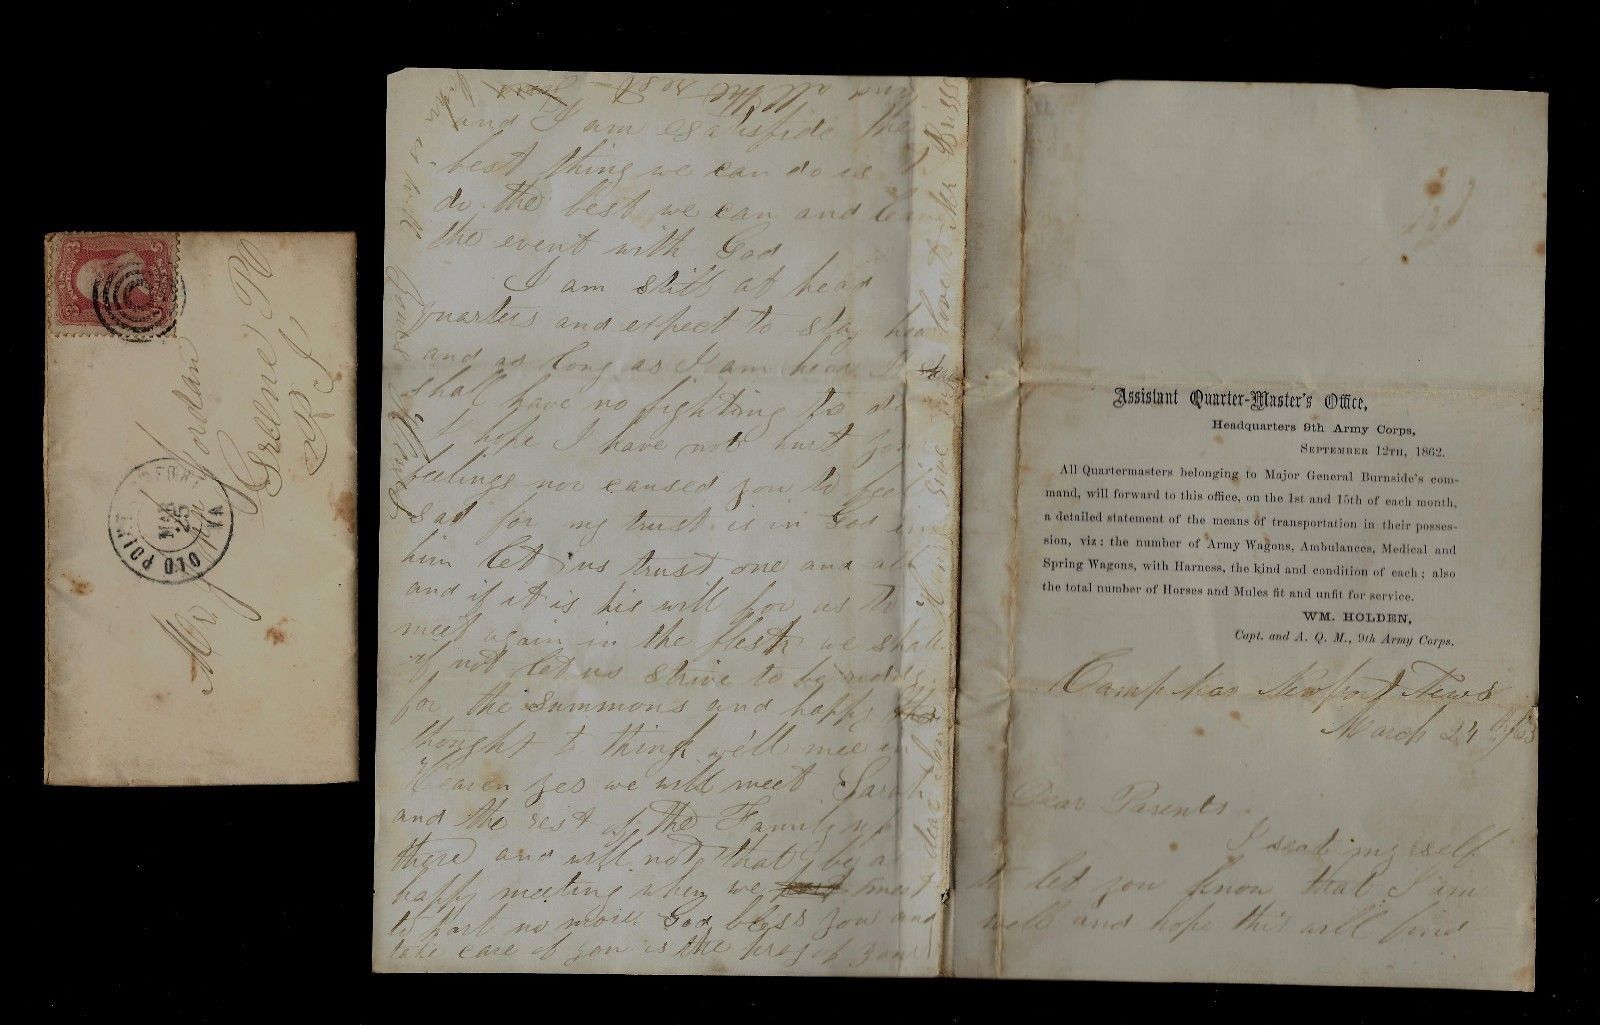 Mr John Jordan
Greene PO
R I
OLD POINT COMFORT
MAR
25
VA
Assistant Quarter-Master's Office,
Headquarters 9th Army Corps,
SEPTEMBER 12TH, 1862.
All Quartermasters belonging to Major General Burnside's com-
mand, will forward to this office, on the 1st and 15th of each month,
a detailed statement of the means of transportation in their posses-
sion, viz: the number of Army Wagons, Ambulances, Medical and
Spring Wagons, with Harness, the kind and condition of each; also
the total number of Horses and Mules fit and unfit for service.
WM. HOLDEN,
Capt. and A. Q. M., 9th Army Corps.
Camp near Newport News
March 24
Dear Parents
I seat my self
to let you know that I am
well and hope this will find
and I am satisfide the
best thing we can do is
do the best we can and leave
the event with God
I am still at head
quarters and expect to stay hear
and as long as I am hear I
shall have no fighting to do
I hope I have not hurt your
feelings nor caused you to feel
sad for my trust is in God in
him let us trust one and all
and if it is his will for us to
meet again in the flesh we shall
if not let us strive to be redy
for the summons and happy the
thought to think we'll meet in
Heaven yes we will meet Sarah
and the rest of the Family up
there and will not that be a
happy meeting when we part meet
to part no more God bless you and
take care of you is the pray of your
dear Son
give my love to Mr Briggs
and all the rest